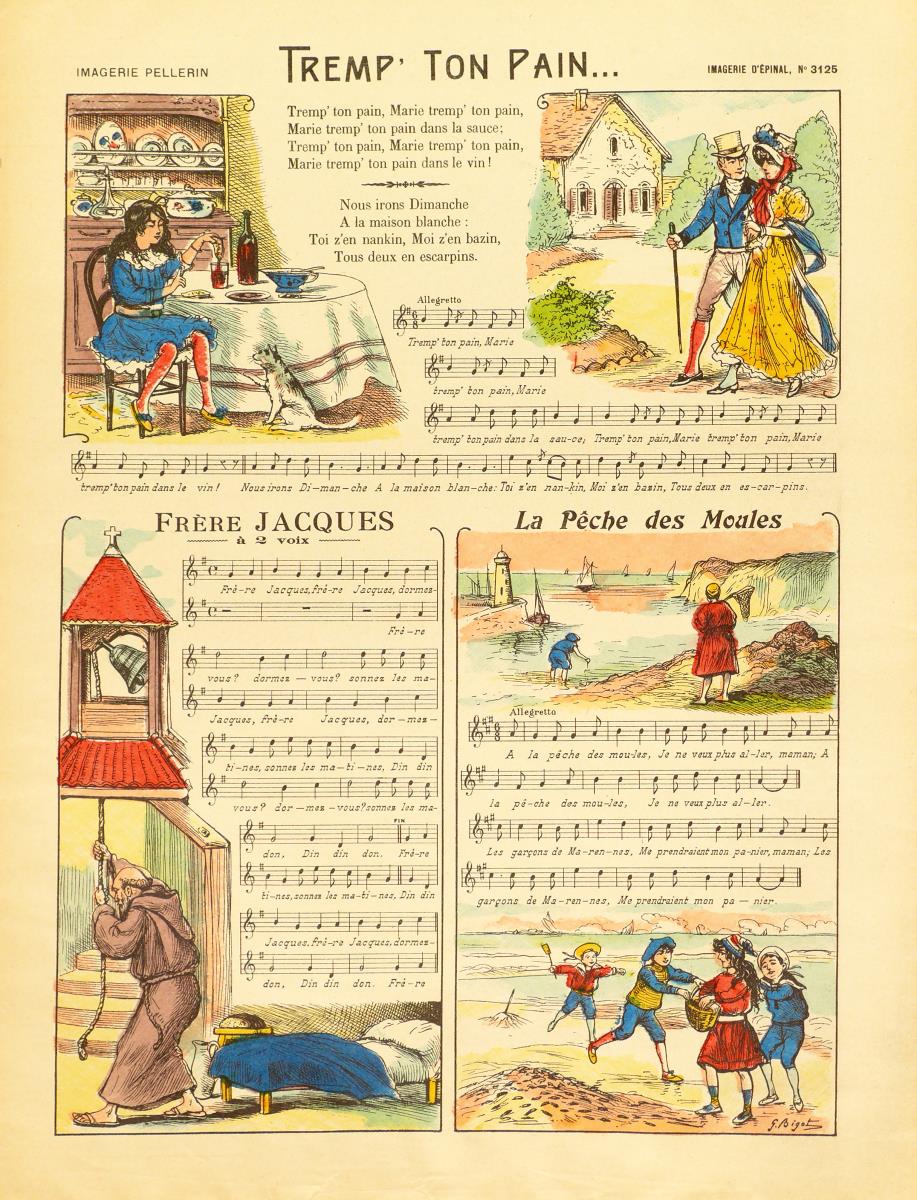 IMAGERIE PELLERIN
TREMP' TON PAIN...
IMAGERIE D'ÉPINAL, Nº 3125
Tremp' ton pain, Marie tremp' ton pain,
Marie tremp' ton pain dans la sauce;
Tremp' ton pain, Marie tremp' ton pain,
Marie tremp' ton pain dans le vin!
Nous irons Dimanche
A la maison blanche :
Toi z'en nankin, Moi z'en bazin,
Tous deux en escarpins.
Allegretto
Tremp' ton pain, Marie
tremp' ton pain, Marie
tremp' ton pain dans la sau-ce; Tremp' ton pain, Marie tremp' ton pain, Marie
tremp' ton pain dans le vin! Nous irons Di-man-che A la maison blan-che: Toi z'en nan-kin, Moi z'en bazin, Tous deux en es-car-pins.
FRÈRE JACQUES
à 2 voix
Frè-re Jacques, frè-re Jacques, dormez-
Frè-re
vous? dormez - vous? sonnez les ma-
Jacques, frè-re Jacques, dor-mez-
ti-nes, sonnez les ma-ti-nes, Din din
vous? dor-mez-vous? sonnez les ma-
FIN
don, Din din don. Frè-re
ti-nes, sonnez les ma-ti-nes, Din din
Jacques, frè-re Jacques, dormez-
don, Din din don. Frè-re
La Pêche des Moules
Allegretto
A la pêche des mou-les, Je ne veux plus al-ler, maman; A
la pê-che des mou-les, Je ne veux plus al-ler.
Les garçons de Ma-ren-nes, Me prendraient mon pa-nier, maman; Les
garçons de Ma-ren-nes, Me prendraient mon pa-nier.
G. Bigot